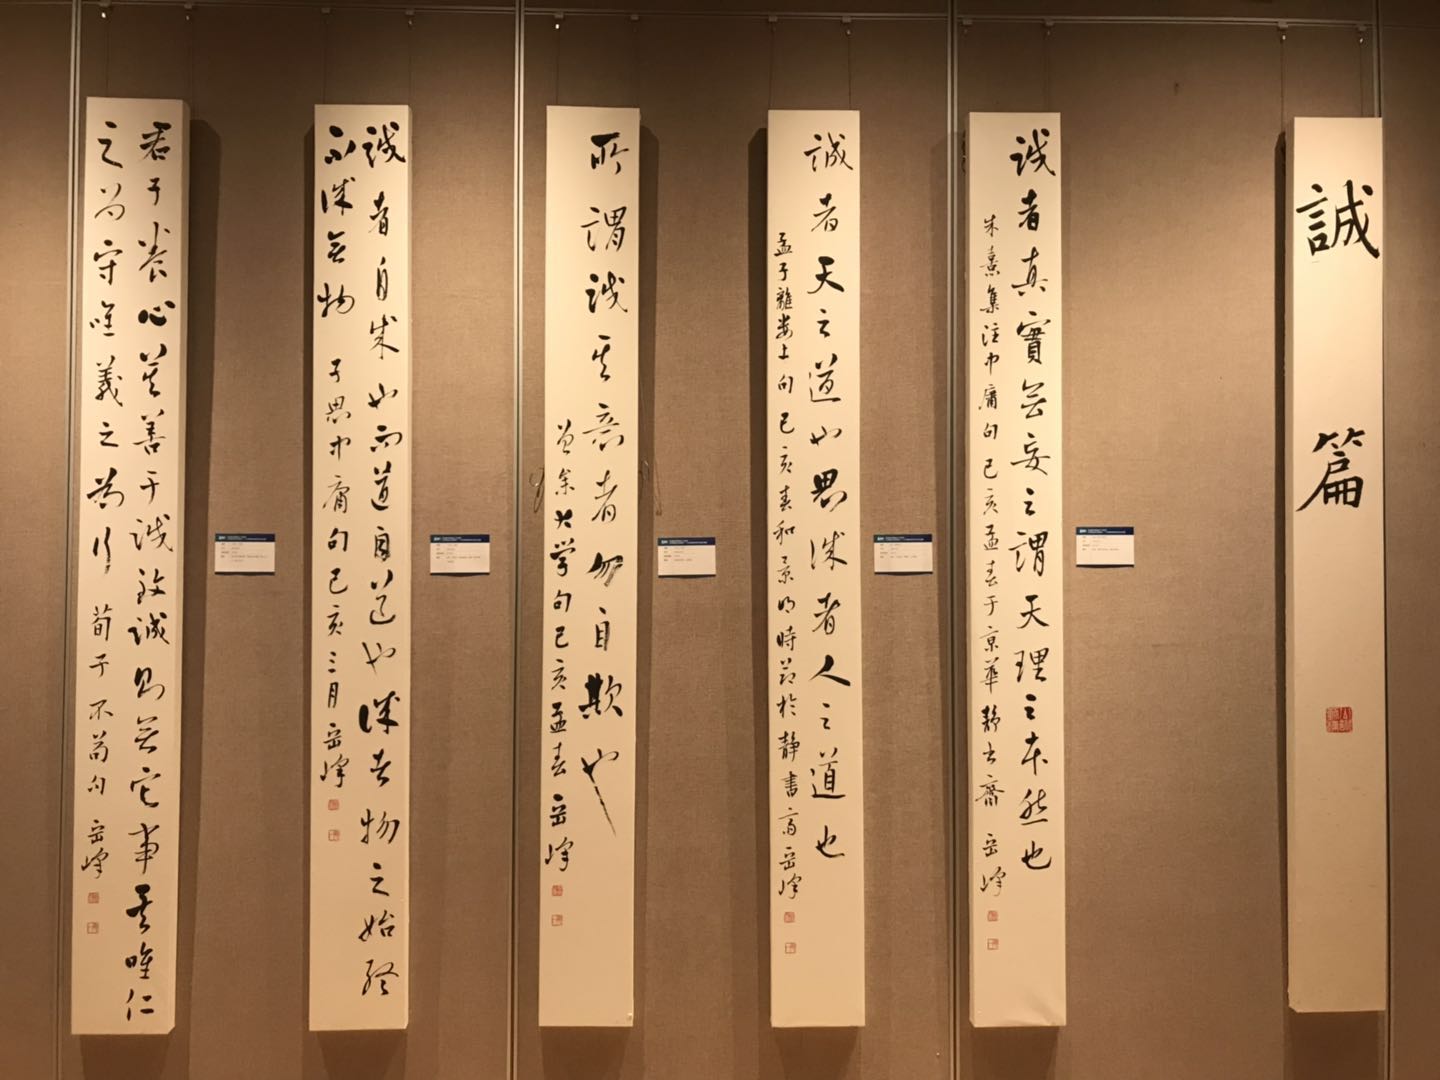 誠篇
誠者真實无妄之謂天理之本然也
朱熹集注中庸句己亥孟春于京華靜書齋岳峰
誠者天之道也思誠者人之道也
孟子離婁上句己亥春和景明時節於靜書齋岳峰
所謂誠其意者勿自欺也
曾參大学句己亥孟春岳峰
誠者自成也而道自道也誠者物之始終
不誠无物
子思中庸句己亥三月岳峰
君子养心莫善于誠致誠則无它事矣唯仁
之为守唯義之为行
荀子不苟句岳峰